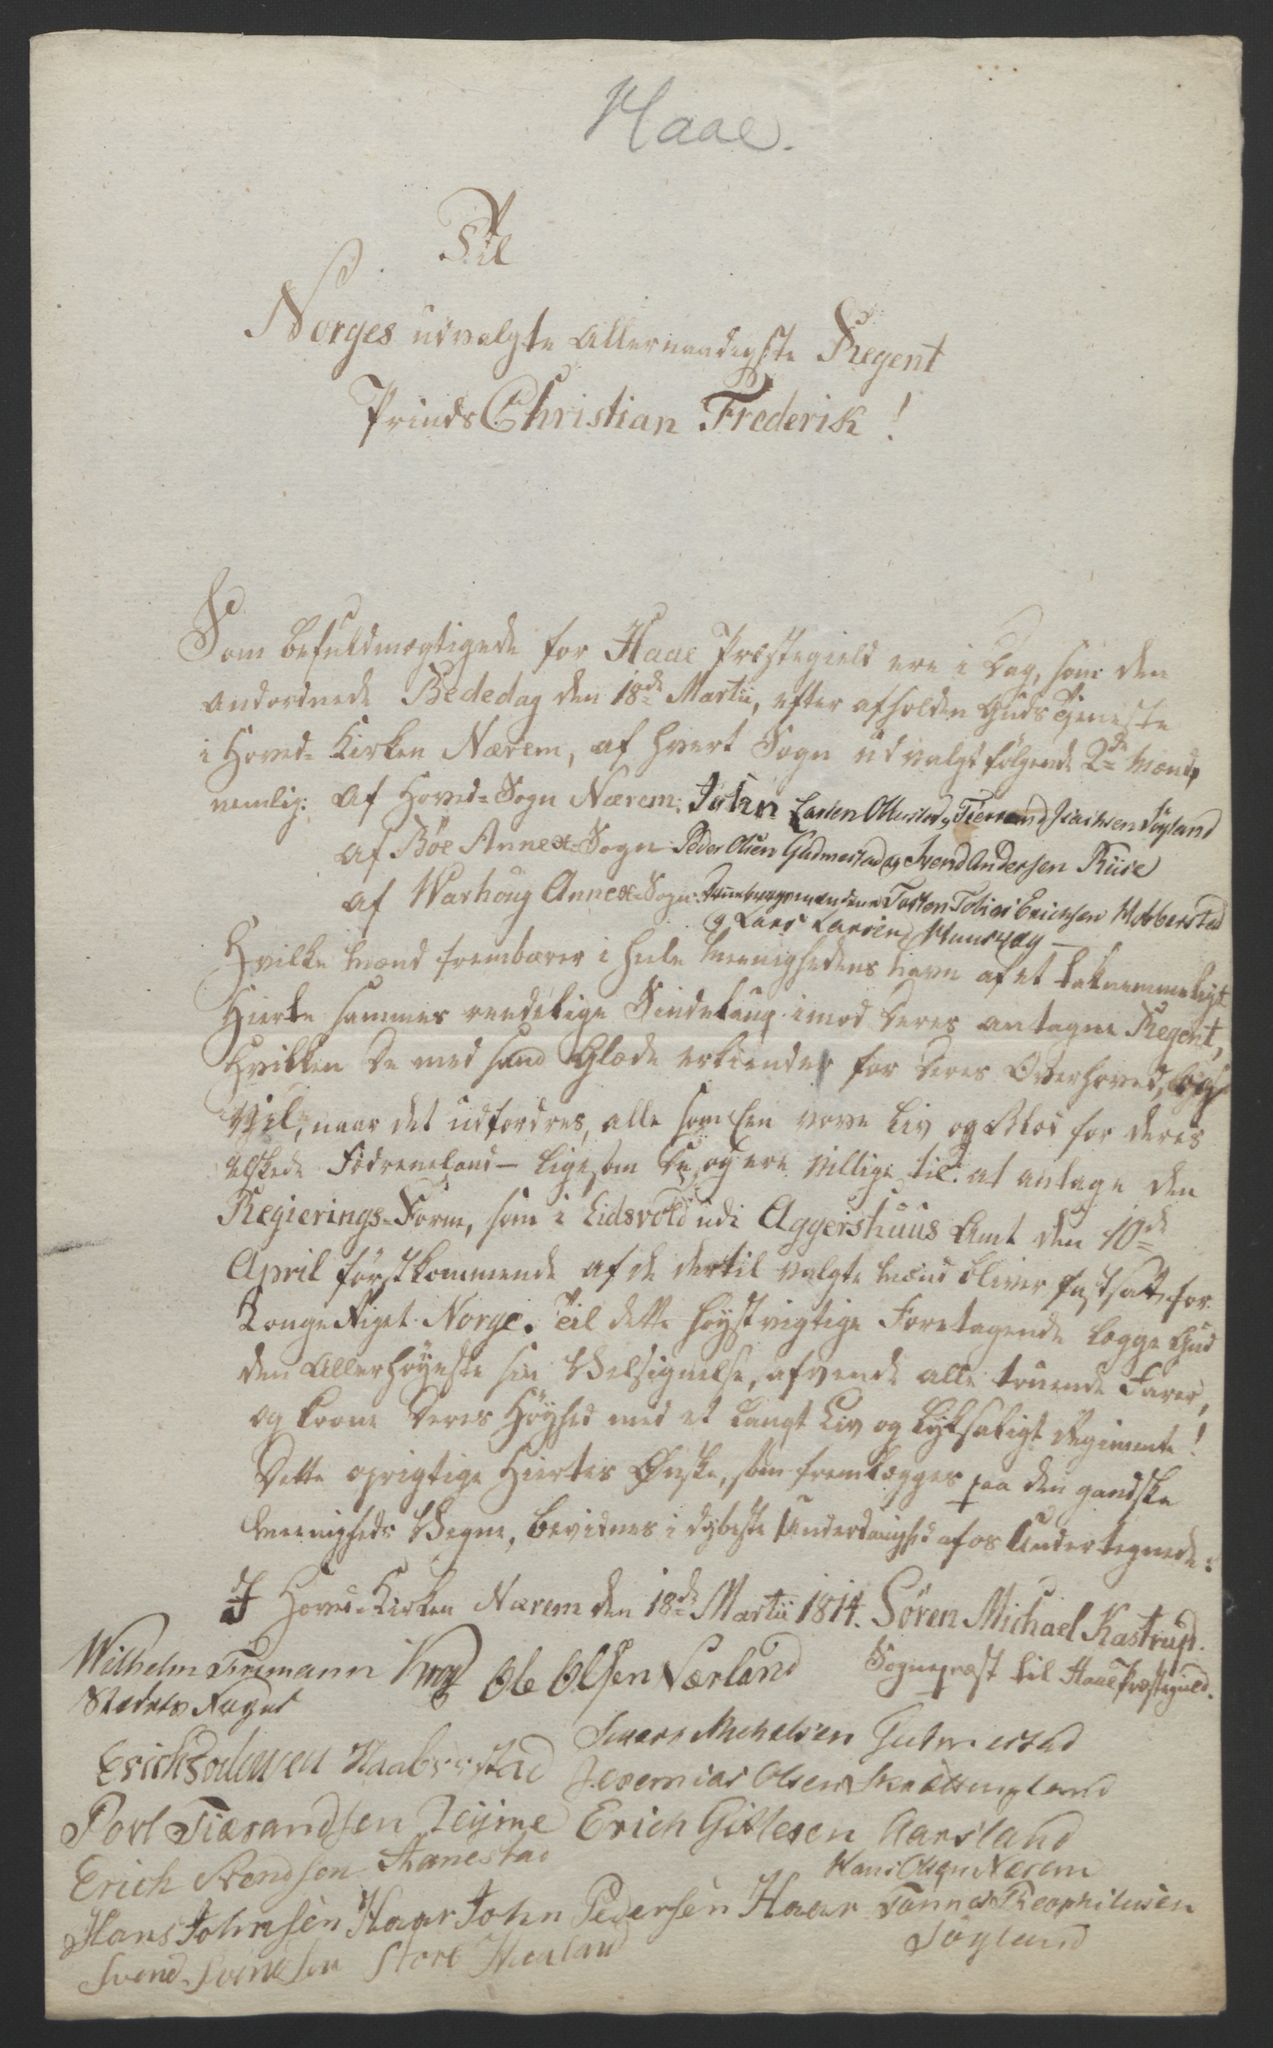 Haae.
Til
Norges udvalgte Allernaadigste Regent
Prinds Christian Frederik!
Som befuldmægtigede for Haae Præstegield ere i Dag, som den
anordnede Bededag den 18de Martii, efter afholden Guds Tjeneste
i Hoved-Kirken Nærem, af hvert Sogn udvalgt følgende 2de Mænd,
nemlig: Af Hoved-Sogn Nærem: John Larsen Obrestad, Tieran Isachsen Søyland
af Böe Annex-Sogn: Peder Olsen Gudmestad og Svend Andersen Riise
af Warhoug Annex-Sogn: Tosten Tobias Erichsen Hobberstad
og Lars Larsen
Hvilke Mænd frembærer i hele Menighedens Navn af et taknemmeligt
Hierte sammes reedelige Sindelaug imod deres antagne Regent,
hvilken De med sand Glæde erkiender for deres Overhoved, og
vil, naar det udfordres, alle som Een vove Liv og Blod for deres
elskede Födreneland – ligesom De og ere villige til at antage den
Regierings-Form, som i Eidsvold udi Aggershuus Amt den 10de
April förstkommende af de dertil valgte Mænd bliver fastsatt for
Konge Riget Norge. Til dette höystvigtige Foretagende lægge Gud
den Allerhöyeste sin Velsignelse, afvende alle truende Farer,
og krone Deres Höyhed med et langt Liv og lyksaligt Regimente!
Dette oprigtige Hiertes Ønske, som fremlægges paa den gandske
Meenigheds Vegne, bevidnes i dybeste Underdanighed af os Undertegnede:
I Hoved-Kirken Nærem den 18de Martii 1814. Sören Michael Kastrup.
Sognepræst til Haae Præstegield.
Wilhelm Frimann Krog Ole Olsen Nærland
Stedets Foged
Michelsen Gutmestad
Erich Haabrstad Jeremias Olsen
Porl Tiærandsen Erich Gitlesen Aarsland
Erich Svendsen Hanestad Hans Olsen Nærem
Hans Johnsen Haar John Pedersen Haar Tønnes Theophilusen
Søyland
Svend Svendsen Store